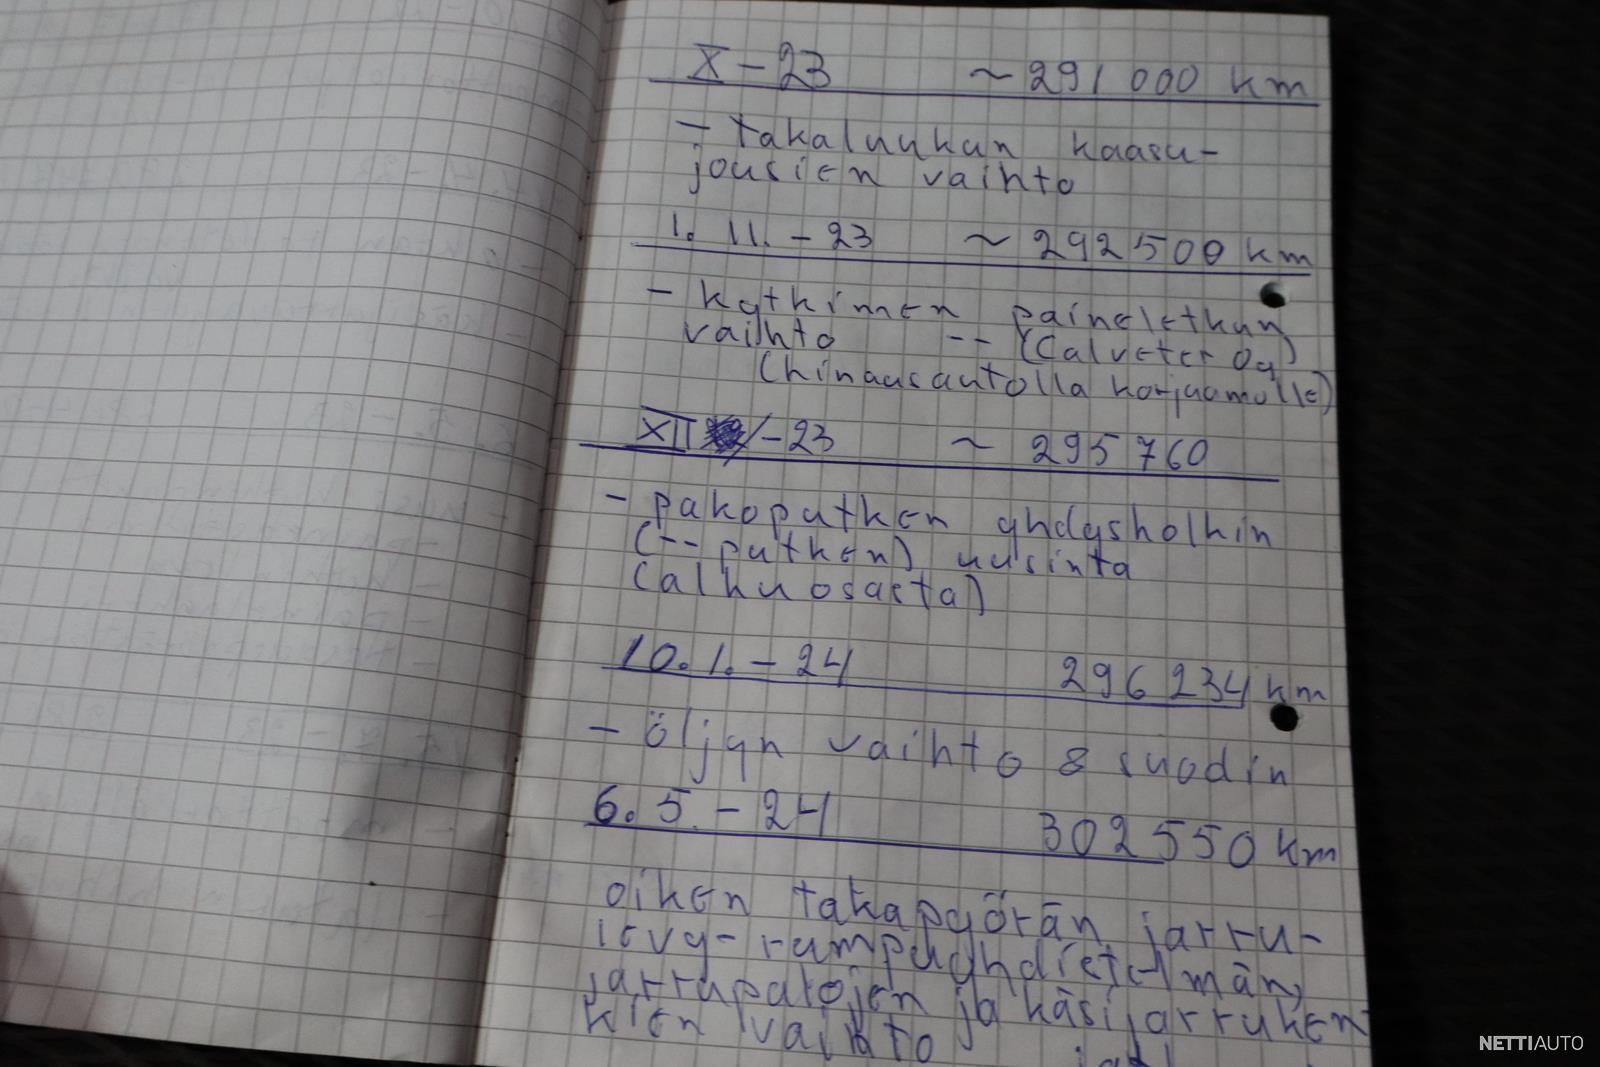 X - 23 ~ 291 000 km
- takaluukun kaasu-
jousien vaihto
1. 11. - 23 ~ 292 500 km
- kytkimen paineletkun
vaihto -- (Calveter Oy)
(hinausautolla korjaamolle)
XII - 23 ~ 295 760
- pakoputken yhdysholkin
(-- putken) uusinta
(alkuosasta)
10. 1. - 24 296 234 km
- öljyn vaihto & suodin
6. 5. - 24 302 550 km
oiken takapyörän jarru-
levy-rumpuyhdistelmän,
jarrupalojen ja käsijarruken
kien vaihto
NETTIAUTO